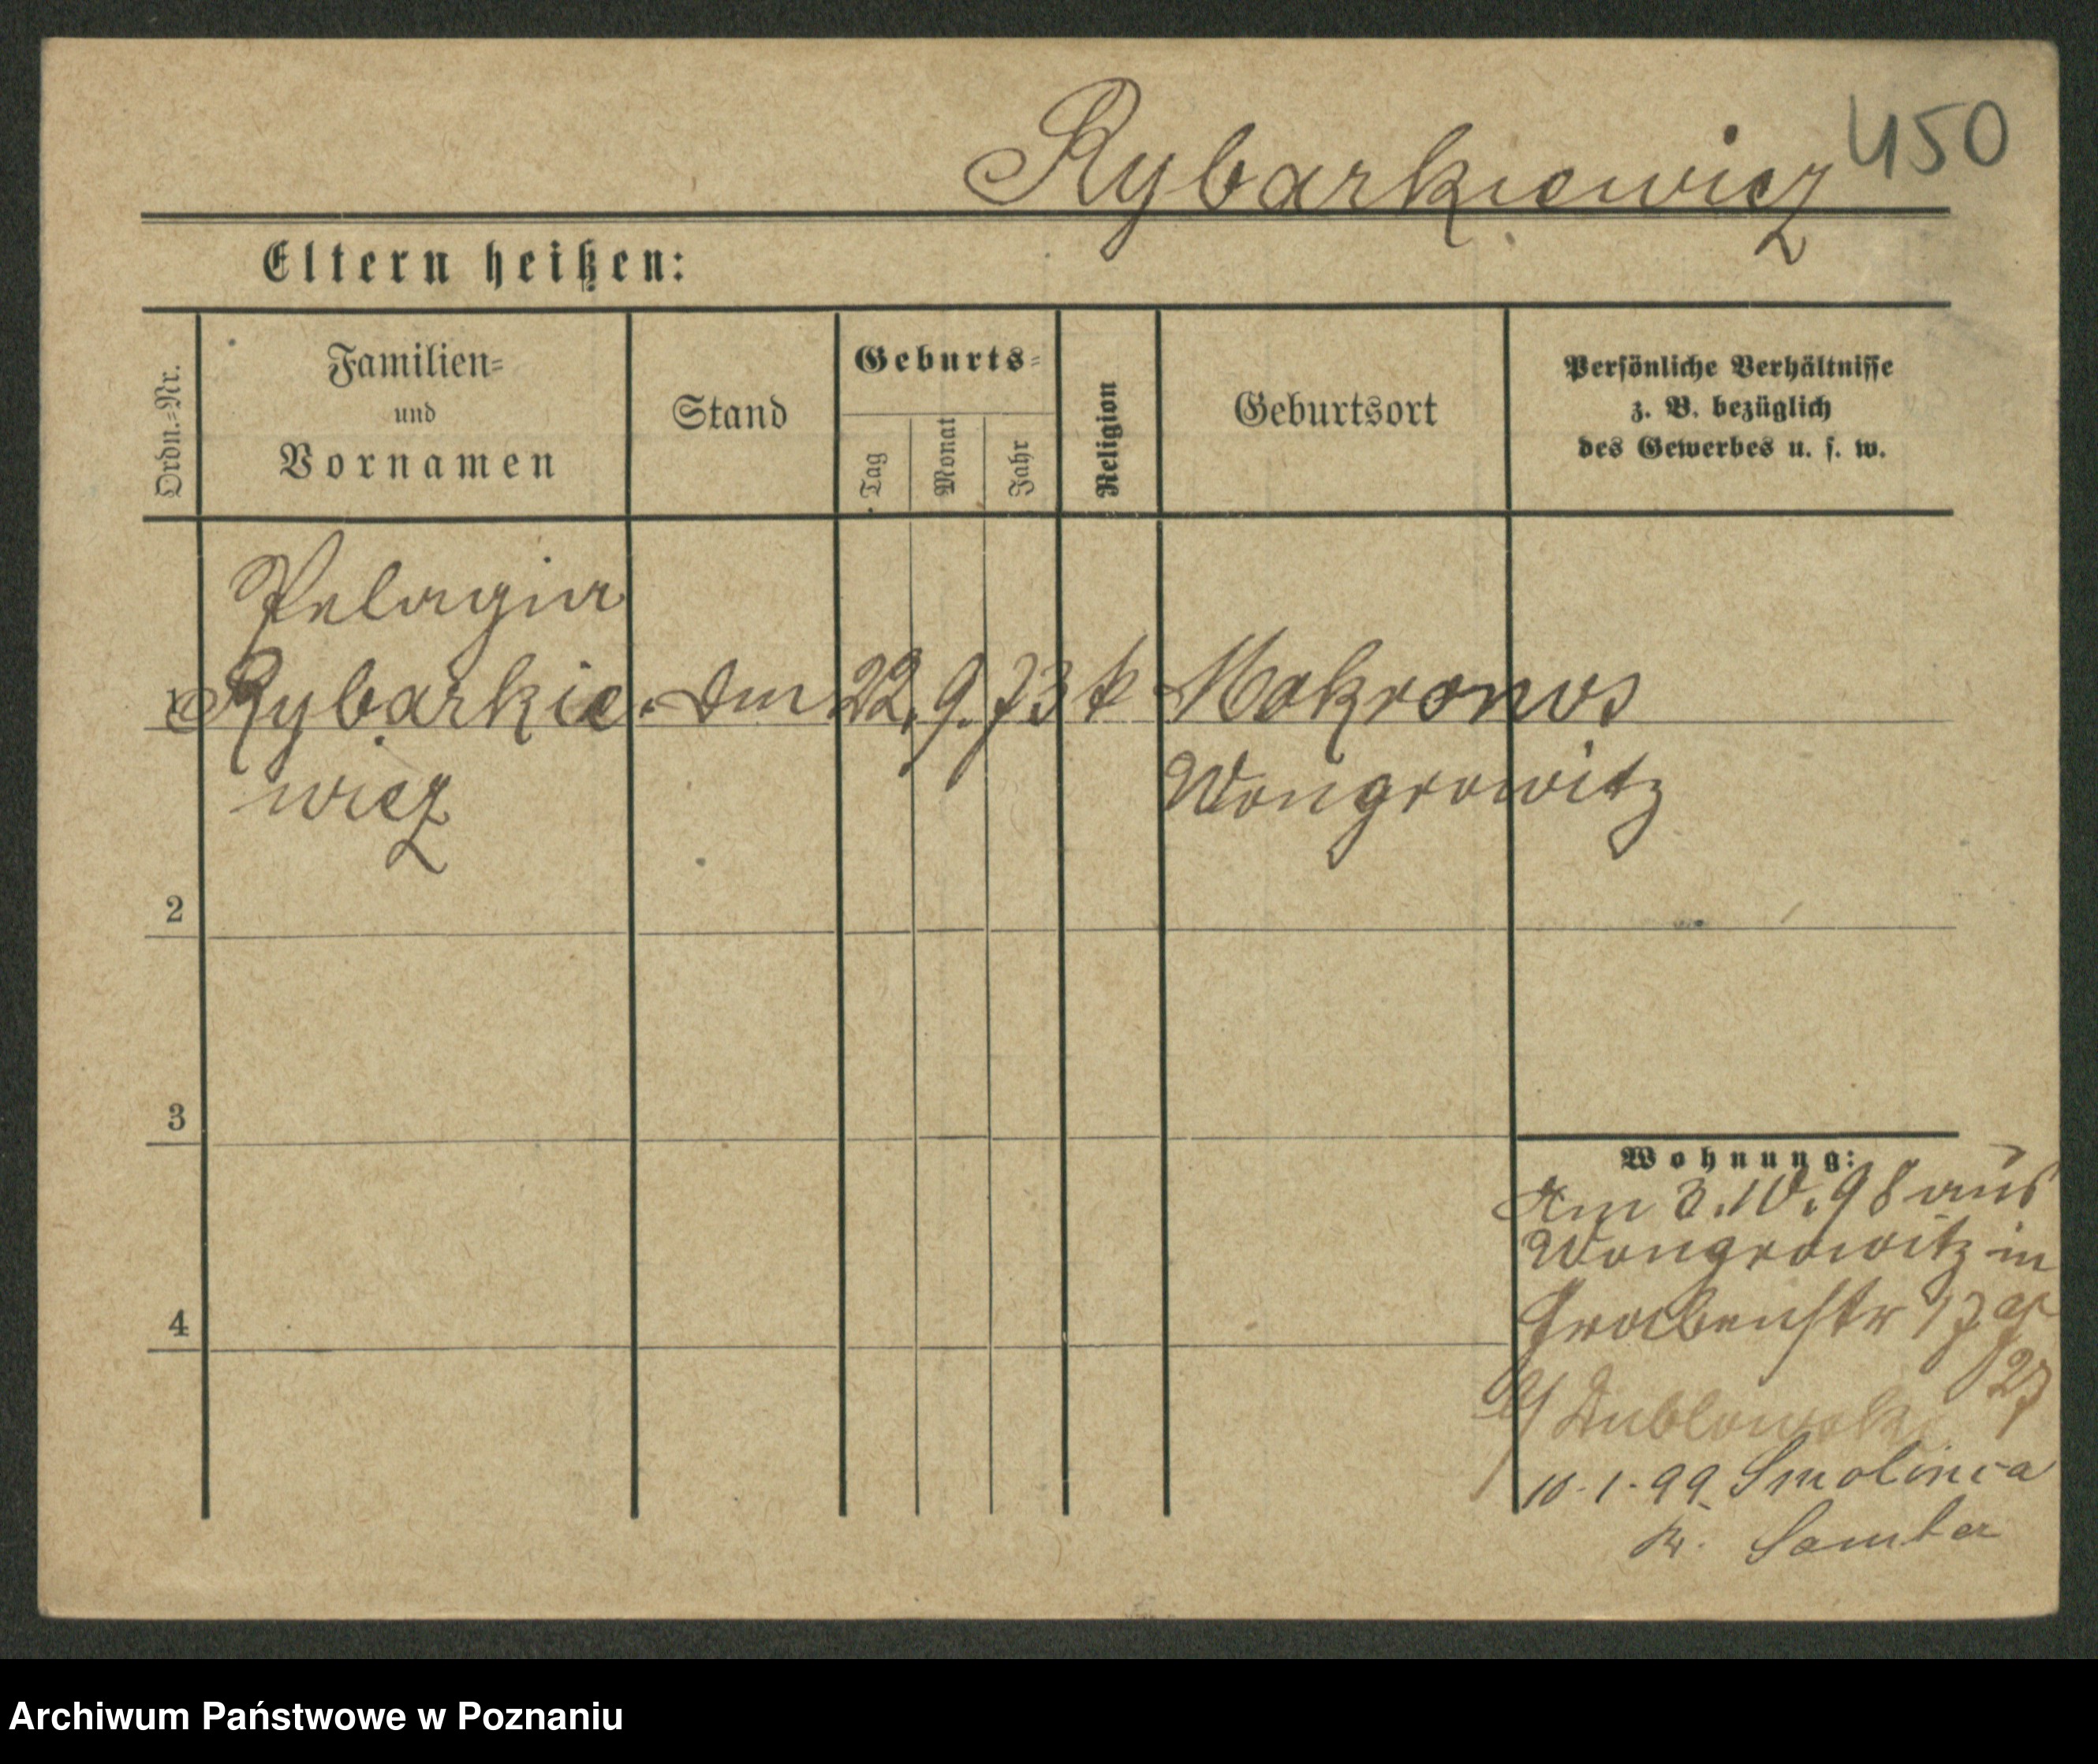 Rybarkiewicz 450
Eltern heißen:
Ordn.-Nr.
Familien-
und
Vornamen
Stand
Geburts-
Tag
Monat
Jahr
Religion
Geburtsort
Persönliche Verhältnisse
z. B. bezüglich
des Gewerbes u. s. w.
Pelagia
1 Rybarkie. Dm 22. 9. 73 k Mokronos
wicz Wongrowitz
2
3
4
Wohnung:
Am 3.10.98 aus
Wongrowitz in
Grabenstr 17
27
10-1-99 Smolinca
Kr. Samter
Archiwum Państwowe w Poznaniu